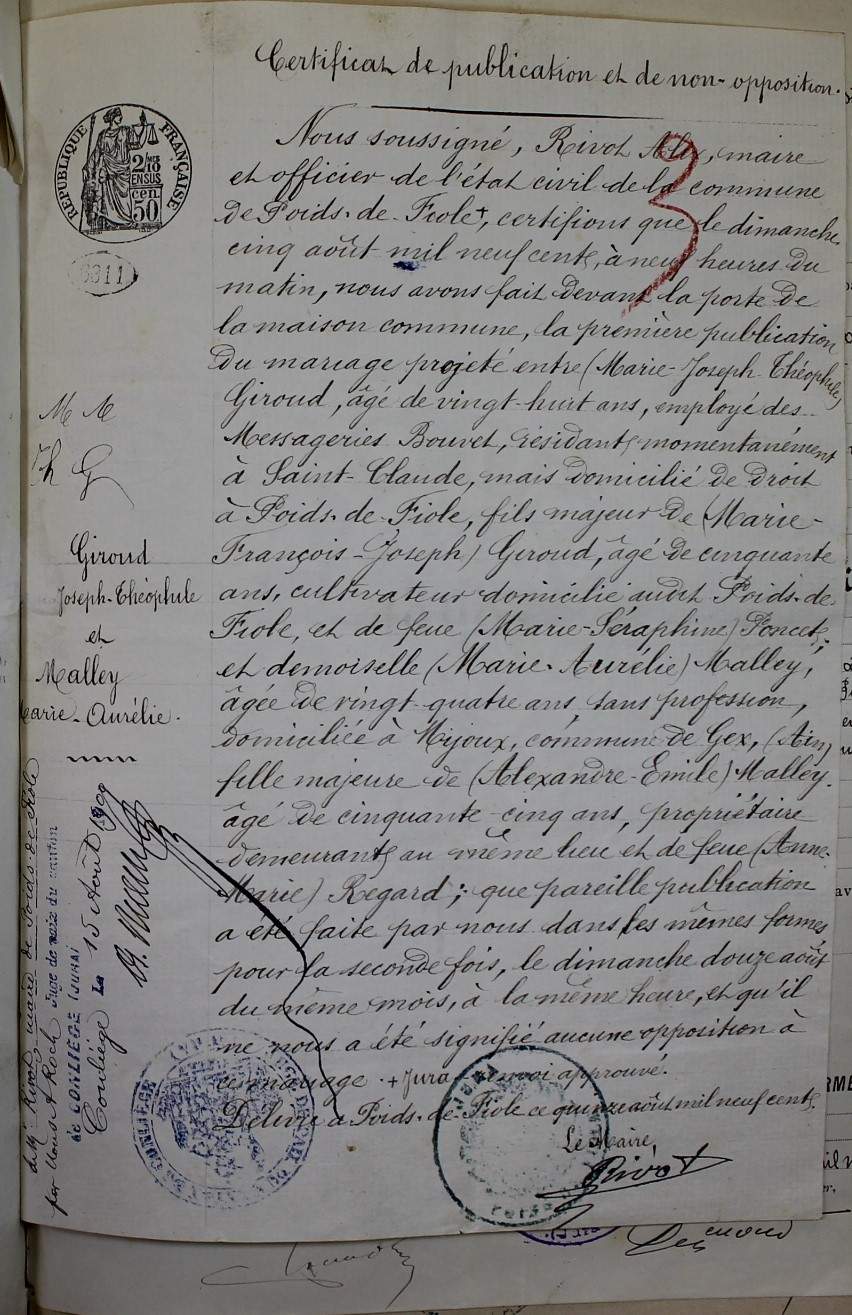 Certificat de publication et de non-opposition.
RÉPUBLIQUE FRANÇAISE
2/10
EN SUS
cen
50
Nous soussigné, Rivot Alix, maire
et officier de l'état civil de la commune
de Poids-de-Fiole+, certifions que le dimanche
cinq août mil neuf cent, à neuf heures du
matin, nous avons fait devant la porte de
la maison commune, la première publication
du mariage projeté entre (Marie-Joseph-Théophile)
Giroud, âgé de vingt-huit ans, employé des
Messageries Bouvet, résidant momentanément
à Saint-Claude, mais domicilié de droit
à Poids-de-Fiole, fils majeur de (Marie-
François-Joseph) Giroud, âgé de cinquante
ans, cultivateur domicilié audit Poids-de-
Fiole, et de feue (Marie-Séraphine) Poncet;
et demoiselle (Marie-Aurélie) Malley,
âgée de vingt-quatre ans, sans profession,
domiciliée à Mijoux, commune de Gex, (Ain)
fille majeure de (Alexandre-Emile) Malley.
âgé de cinquante-cinq ans, propriétaire
demeurant au même lieu et de feue (Anne-
Marie) Regard; que pareille publication
a été faite par nous dans les mêmes formes
pour la seconde fois, le dimanche douze août
du même mois, à la même heure, et qu'il
ne nous a été signifié aucune opposition à
ce mariage. + Jura - renvoi approuvé.
Délivré à Poids-de-Fiole ce quinze août mil neuf cent.
Le Maire,
Rivot
M M
Th G
Giroud
Joseph-Théophile
et
Malley
Marie-Aurélie.
de Mr Rivot maire de Poids-de-Fiole
par Nous A Roch Juge de paix du canton
de CONLIEGE (JURA)
Conliège Le 15 Août 1900